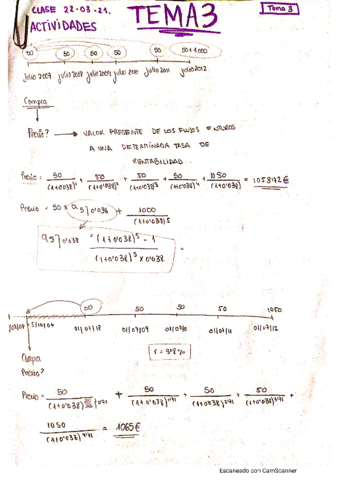 CLASE 22-03-21.
TEMA3
Tema 3
ACTIVIDADES
50 50 50 50 50 50+1000
julio 2007 julio 2008 julio 2009 julio 2010 julio 2011 julio 2012
Compra
Precio? → VALOR PRESENTE DE LOS FLUJOS
A UNA DETERMINADA TASA DE
RENTABILIDAD...
Precio = 50/(1+0'038)^1 + 50/(1+0'038)^2 + 50/(1+0'038)^3 + 50/(1+0'038)^4 + 1050/(1+0'038) =
Precio = 50 × a5]0'038 + 1000/(1+0'038)^5
a5]0'038 = (1+0'038)^5 - 1 / (1+0'038)^5 × 0'038 =
50 50 50 50 1050
01/07/09 01/07/11 01/07/12
Compra
Precio?
r = 3'8%
Precio = 50/(1+0'038) + 50/(1+0'038) + 50/(1+0'038) + 50/(1+0'038) +
1050/(1+0'038) = 1065€
Escaneado con CamScanner